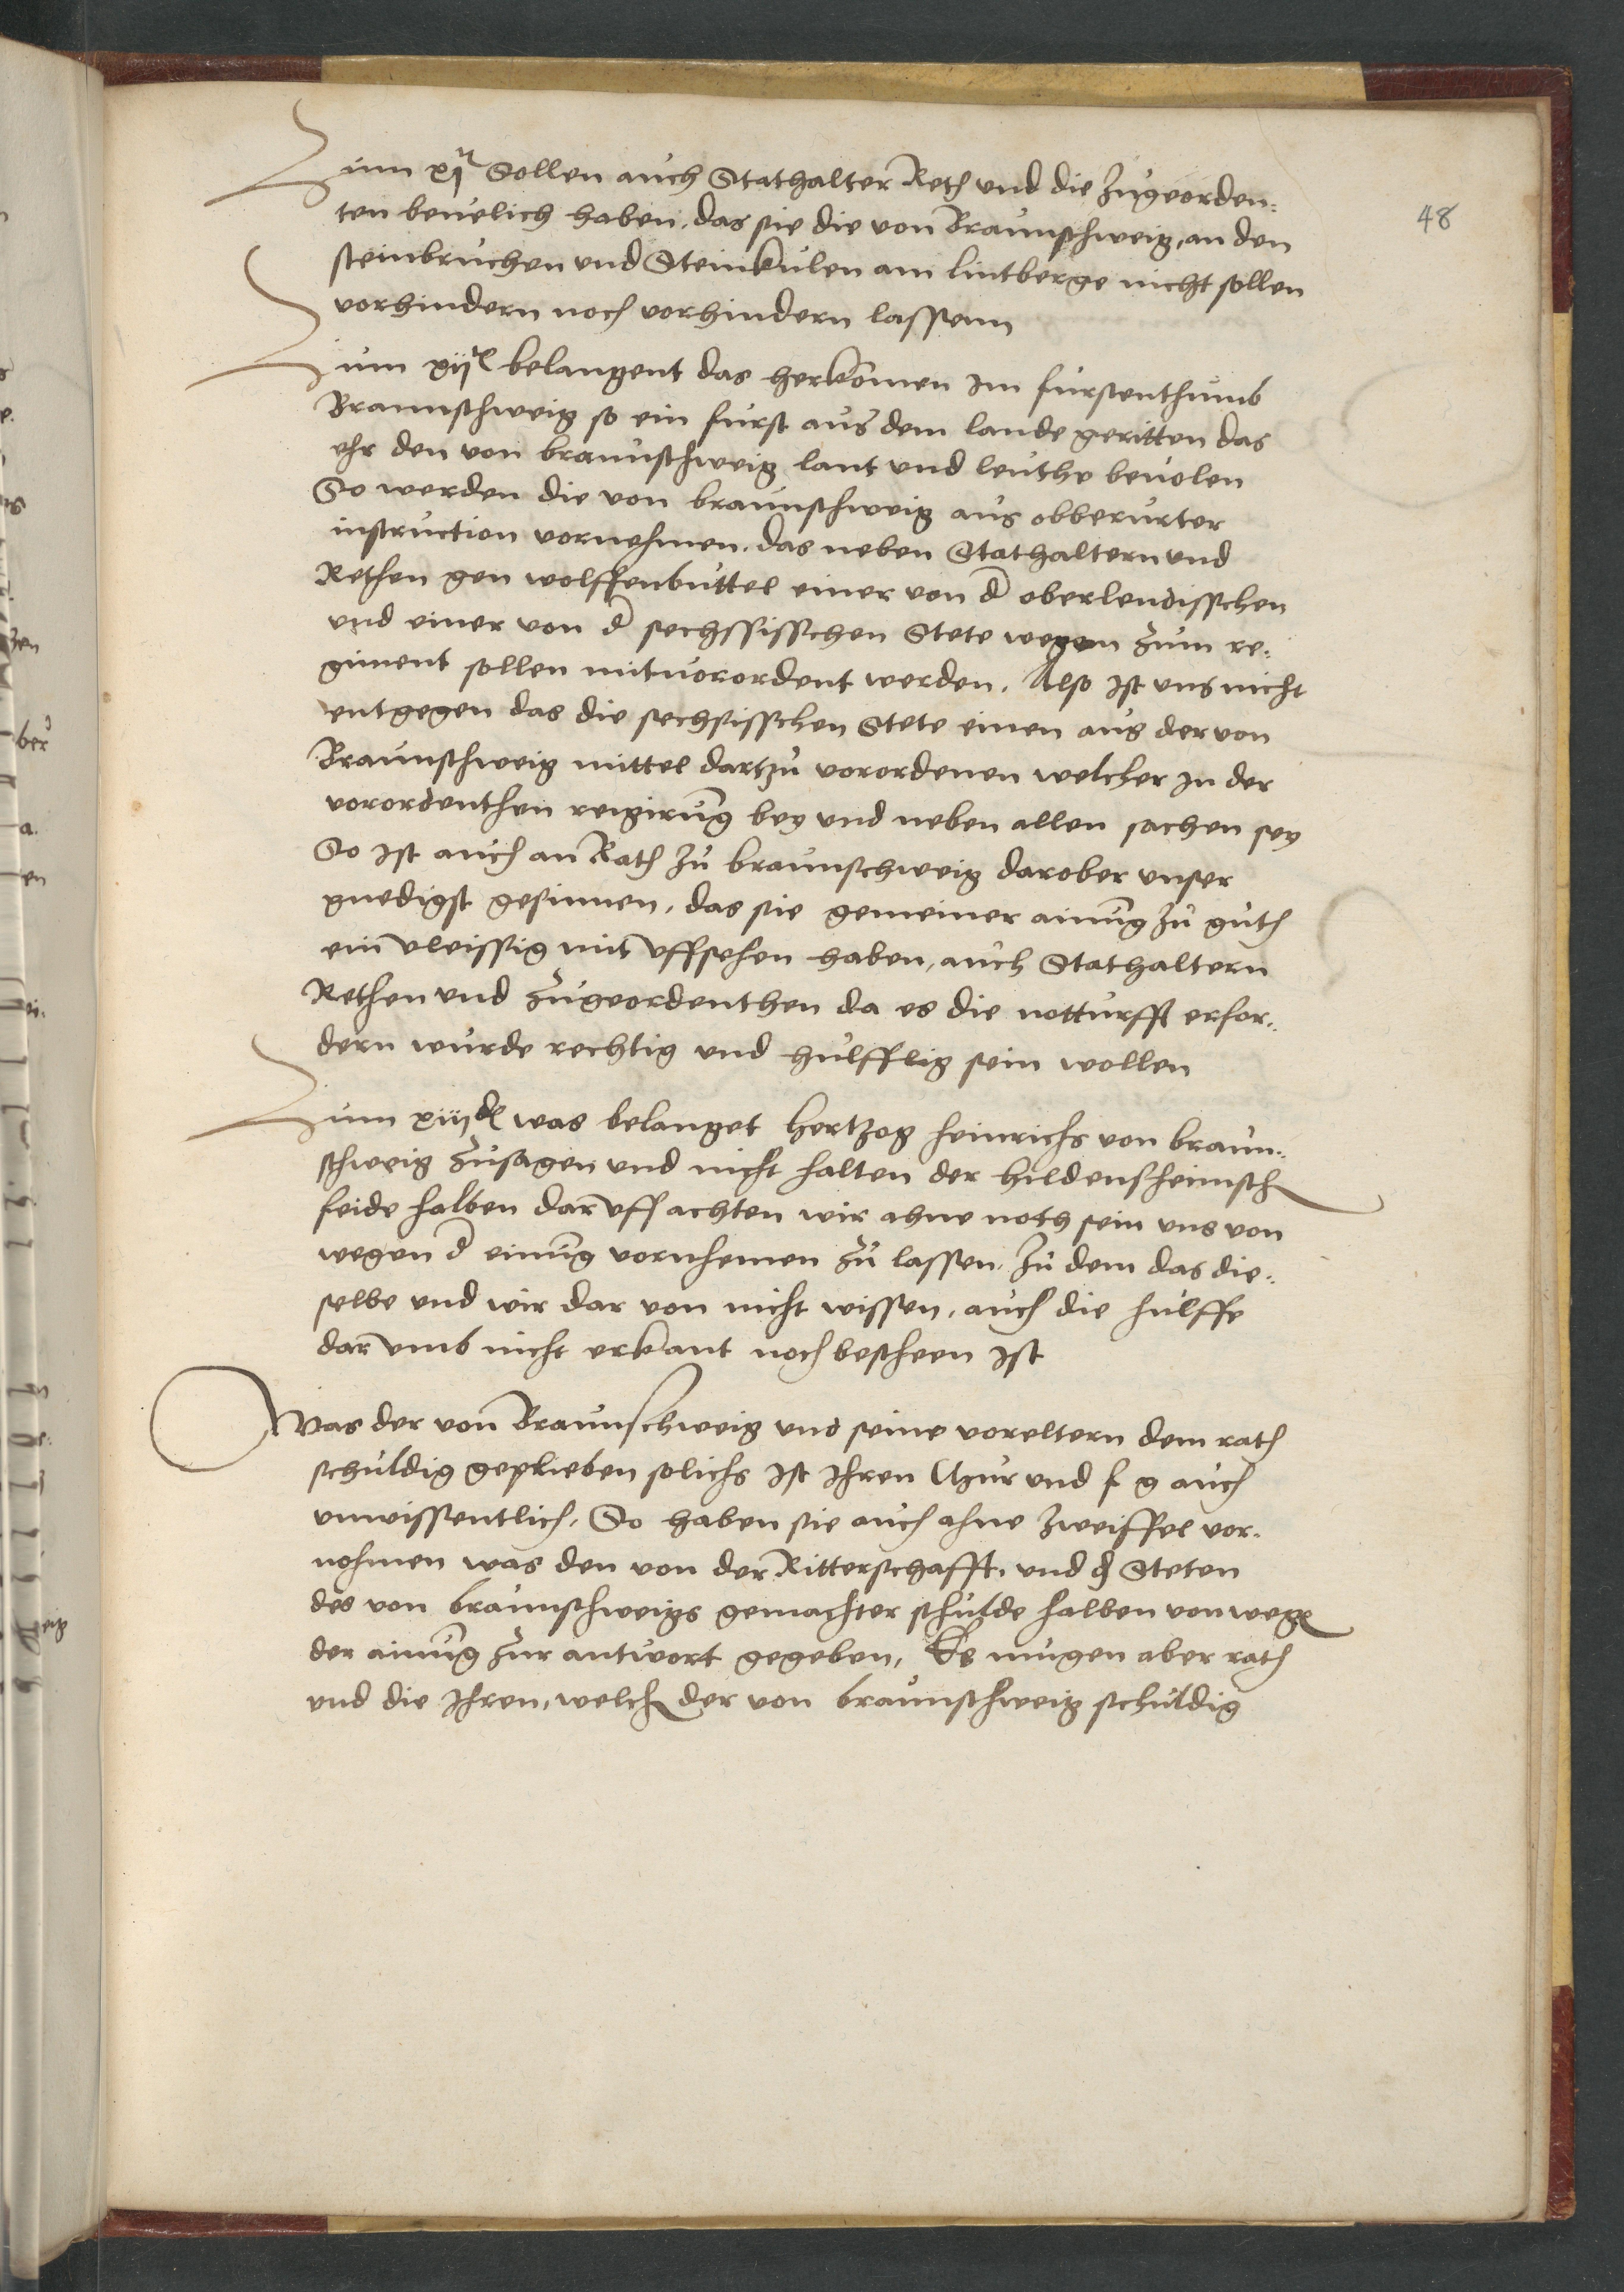 48
Zum xj Sollen auch Stathalter Reth und die zugeorden:
ten beuelich haben, das sie die von Braunschweig, an den
steinbruchen und Steinkulen am lintberge nicht sollen
vorhindern noch vorhindern lassenn
Zum xij belangent das herkomen Im furstenthumb
Braunschweig so ein furst aus dem lande geritten das
ehr den von braunschweig lant und leuthe beuolen
So werden die von braunschweig aus obberurter
instruction vornehmen, das neben Stathaltern und
Rethen gen wolffenbuttel einer von d oberlendisschen
und einer von d sechssisschen Stete wegen zum re:
giment sollen mituorordent werden. Also Ist uns nicht
entgegen das die sechsisschen Stete einen aus der von
Braunschweig mittel dartzu vorordenen welcher In der
vorordenthen reigirung bey und neben allen sachen sey
So Ist auch an Rath zu braunschweig darober unser
gnedigst gesinnen, das sie gemeiner ainung zu guth
ein vleissig mit uffsehen haben, auch Stathaltern
Rethen und zugeordenthen da es die notturfft erfor:
dern wurde rechtig und hulfflig sein wollen
Zum xiij was belanget hertzog heinrichs von braun:
schweig zusagen und nicht halten der hildensheimsch
feide halben daruff achten wir ahne noth sein uns von
wegen d einung vornhemen zu lassen, zu dem das die:
selbe und wir dar von nicht wissen, auch die hulffe
dar umb nicht erkant noch bescheen Ist
Was der von Braunschweig und seine voreltern dem rath
schuldig geplieben solichs Ist Ihren Chur und f g auch
unwissentlich, So haben sie auch ahne zweiffel vor:
nohmen was den von der Ritterschafft, und d Steten
des von braunschweigs gemachter schulde halben von wege
der ainung zur antwort gegeben, Es mugen aber rath
und die Ihren, welch der von braunschweig schuldig